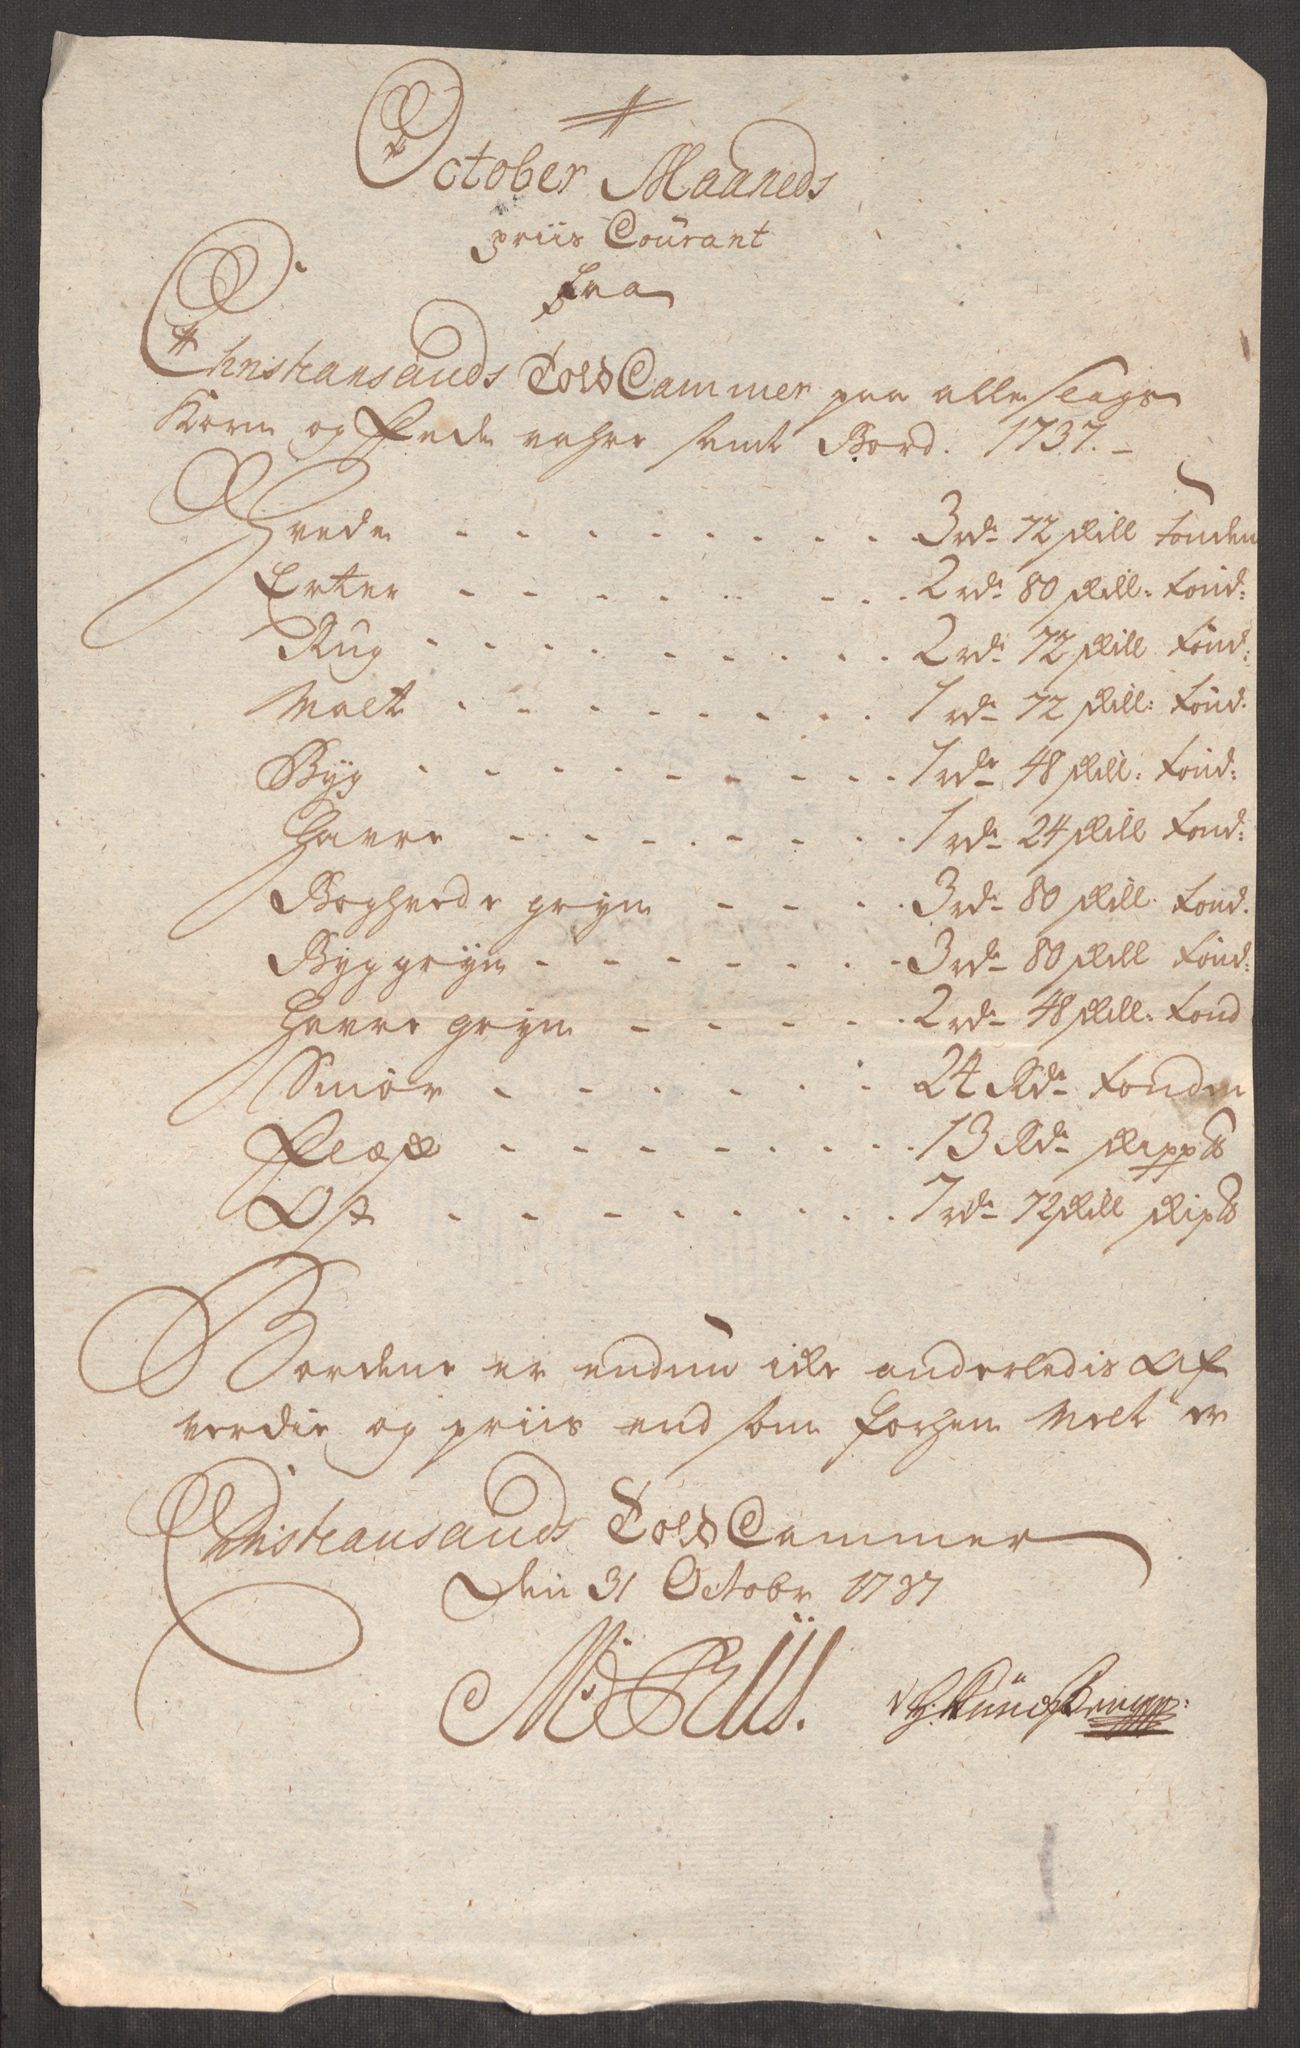 October Maaneds
priis Courant
fra
Christiansands Told Cammer paa alle slags
Korn og Fede vahre samt Bord. 1737.
Hvede - - - - - - - - 3 rdr 72 skill tonden
Erter - - - - - - - - 2 rdr 80 skill: tönd:
Rug - - - - - - - - 2 rdr 72 skill tönd:
Malt - - - - - - - - 1 rdr 72 skill: tönd:
Byg - - - - - - - - 1 rdr 48 skill: tönd:
Havre - - - - - - - 1 rdr 24 skill tond:
Boghvede gryn - - - - 3 rdr 80 skill. tond.
Byggryn - - - - - - - 3 rdr 80 skill tönd:
Havre gryn - - - - - 2 rdr 48 skill: tond
Smör - - - - - - - 24 Rdr tonden
Flæsk - - - - - - - 13 Rdr skipp℔
Ost - - - - - - - - 7 rdr 72 skill skip℔
Bordene er endnu icke anderledis af
verdie og priis end som forhen melt er
Christiansands Told Cammer
Den 31 Octobr 1737